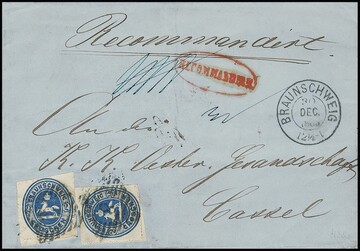 Recommandirt.
RECOMMANDIRT
BRAUNSCHWEIG
DEC.
12¼-1
An die
K. K. Oester. Gesandschaft
Cassel